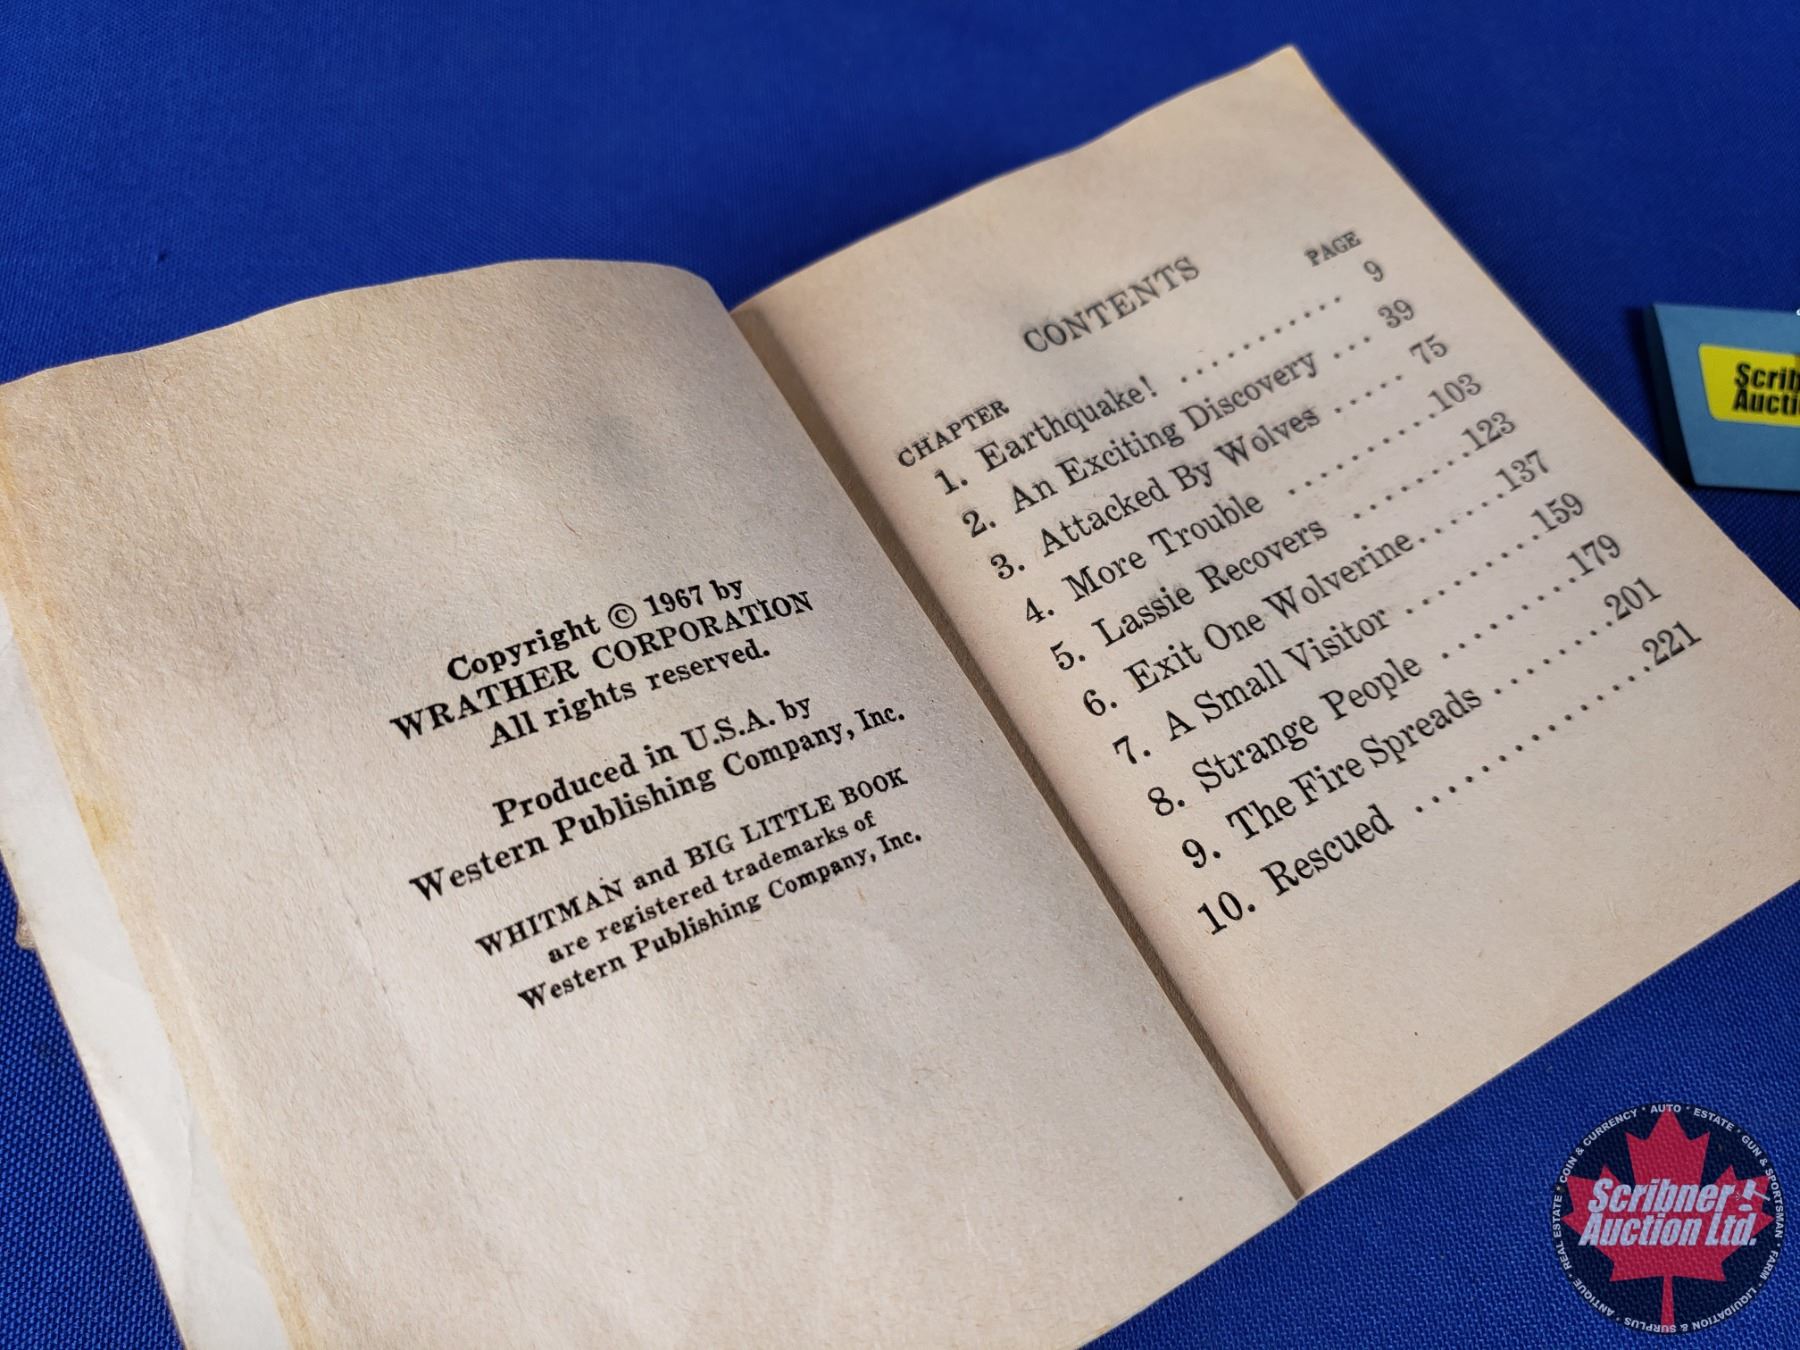 Copyright © 1967 by
WRATHER CORPORATION
All rights reserved.
Produced in U.S.A. by
Western Publishing Company, Inc.
WHITMAN and BIG LITTLE BOOK
are registered trademarks of
Western Publishing Company, Inc.
CONTENTS
CHAPTER PAGE
1. Earthquake! .......... 9
2. An Exciting Discovery ... 39
3. Attacked By Wolves ..... 75
4. More Trouble ..........103
5. Lassie Recovers .........123
6. Exit One Wolverine......137
7. A Small Visitor .........159
8. Strange People .........179
9. The Fire Spreads ........201
10. Rescued ..............221
Scrib
Aucti
Scribner
Auction Ltd.
COIN & CURRENCY * AUTO * ESTATE * GUN & SPORTSMAN * FARM * LIQUIDATION & SURPLUS * ANTIQUE * REAL ESTATE *